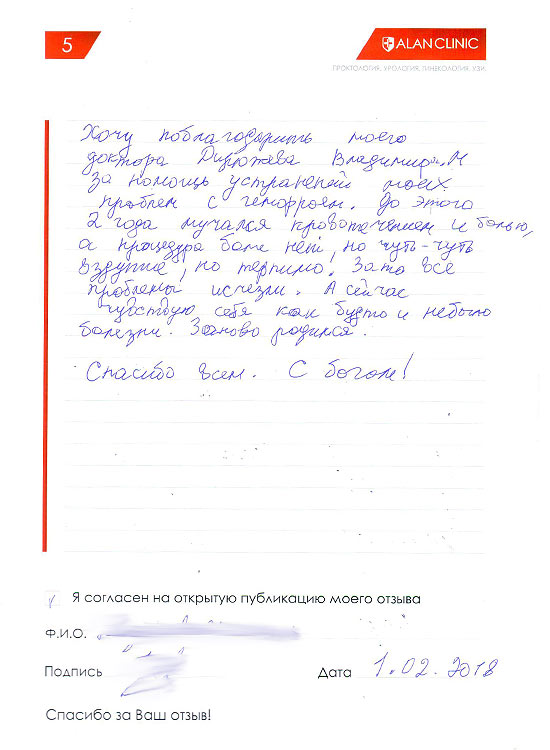 5
ALANCLINIC
ПРОКТОЛОГИЯ. УРОЛОГИЯ. ГИНЕКОЛОГИЯ. УЗИ.
Хочу поблагодарить моего
доктора Владимира. М
за помощь устранений моих
проблем с геморроем. До этого
2 года мучался кровотечением и болью,
а процедура боли нет, но чуть-чуть
вздутие, но терпимо. Зато все
проблемы исчезли. А сейчас
чувствую себя как будто и небыло
болезни. Заново родился.
Спасибо всем. С богом!
Я согласен на открытую публикацию моего отзыва
Ф.И.О.
Подпись
Дата 1.02.2018
Спасибо за Ваш отзыв!